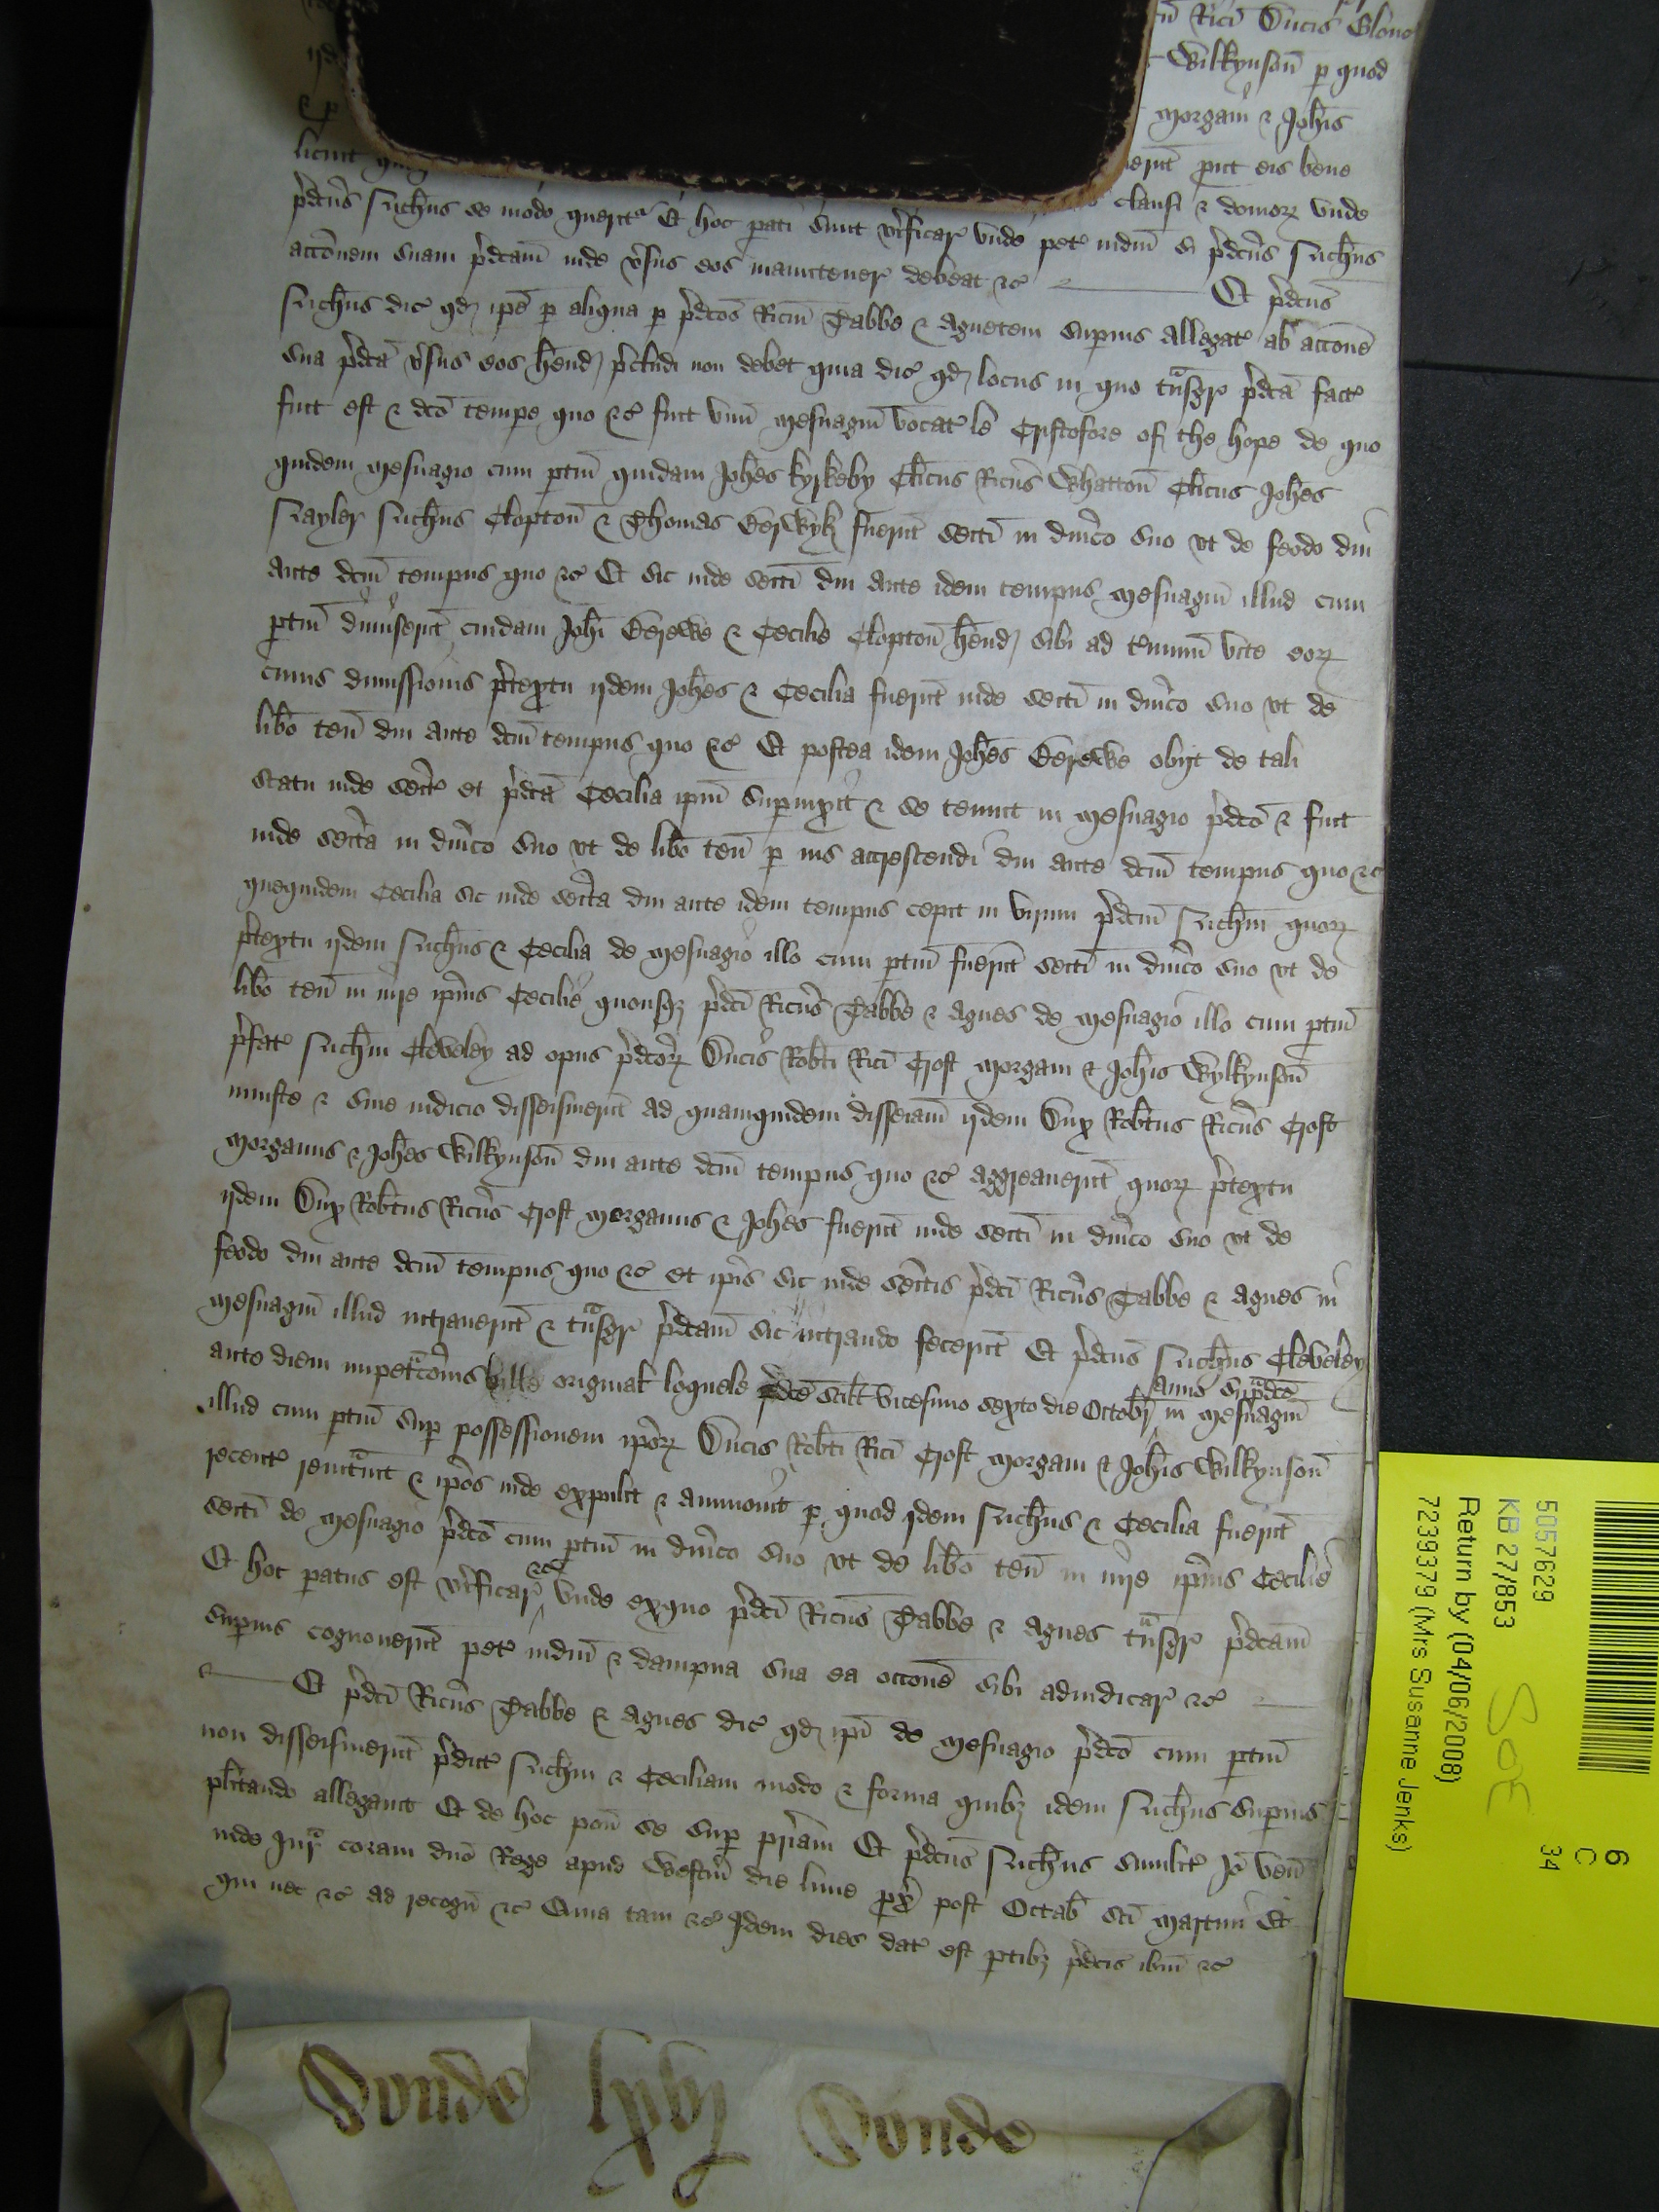 Rici Ducis Glouc
Wilkynson p quod
Morgani & Johis
licuit prout eis bene
clausi & domorz unde
pdcus Michus se modo querit Et hoc pati sunt vificar unde pet iudm si pdcus Michus
accionem suam pdcam inde vsus eos manutener debeat &c Et pdcus
Michus dic qd ipe p aliqua p pdcos Ricm Tabbe & Agnetem supius allegat ab accone
sua pdca vsus eos hend pcludi non debet quia dic qd locus in quo tnsgr pdca fact
fuit est & dco tempe quo &c fuit unu mesuagiu vocat le Cristofore of the hope de quo
quidem mesuagio cum ptin quidam Johes Kyrkeby Clicus Ricus Whatton Clicus Johes
Nayler Michus Clopton & Thomas Berwyk fuerut seiti in dnico suo ut de feodo diu
ante dcm tempus quo &c Et sic inde seiti diu ante idem tempus mesuagiu illud cum
ptin dimiserut cuidam Johi Berewe & Cecilie Clopton hend sibi ad tminu vite eorz
cuius dimissionis ptextu ijdem Johes & Cecilia fuerut inde seiti in dnico suo ut de
libo ten diu ante dcm tempus quo &c Et postea idem Johes Berewe obijt de tali
statu inde seit et pdca Cecilia ipm supuixit & se tenuit in mesuagio pdco & fuit
inde seita in dnico suo ut de libo ten p ius accrescendi diu ante dcm tempus quo &c
quequidem Cecilia sic inde seita diu ante idem tempus cepit in virum pdcm Michm quorz
ptextu ijdem Michus & Cecilia de mesuagio illo cum ptin fuerut seiti in dnico suo ut de
libo ten in iure ipius Cecilie quousqz pdci Ricus Tabbe & Agnes de mesuagio illo cum ptin
pfat Michm Cleveley ad opus pdcorz Ducis Robti Rici Croft Morgani & Johis Wylkynson
iniuste & sine iudicio disseisiuerut ad quamquidem disseiam ijdem Dux Robtus Ricus Croft
Morganus & Johes Wilkynson diu ante dcm tempus quo &c aggreauerut quorz ptextu
ijdem Dux Robtus Ricus Croft Morganus & Johes fuerut inde seiti in dnico suo ut de
feodo diu ante dcm tempus quo &c et ipis sic inde seitis pdci Ricus Tabbe & Agnes in
mesuagiu illud intrauerut & tnsgr pdcam sic intrando fecerut Et pdcus Michus Cleveley
ante diem impetracois bille original loquele pdce scilt vicesimo sexto die Octobr anno supdco in mesuagiu
illud cum ptin sup possessionem iporz Ducis Robti Rici Croft Morgani & Johis Wilkynson
recent reintrauit & ipos inde expulit & ammouit p quod ijdem Michus & Cecilia fuerut
seiti de mesuagio pdco cum ptin in dnico suo ut de libo ten in iure ipius Cecilie
Et hoc patus est vificar &c unde exquo pdci Ricus Tabbe & Agnes tnsgr pdcam
supius cognouerut pet iudm & dampna sua ea occone sibi adiudicar &c
Et pdci Ricus Tabbe & Agnes dic qd ipi de mesuagio pdco cum ptin
non disseisiuerut pdict Michm & Ceciliam modo & forma quibz idem Michus supius
plitando allegauit Et de hoc pon se sup priam Et pdcus Michus similit Io ven
inde Jur coram dno Rege apud Westm die lune px post Octab sci Martini Et
qui nec &c ad recogn &c Quia tam &c Idem dies dat est ptibz pdcis ibm &c
Londo
Londo
5057629
KB 27/853
Return by (04/06/2008)
7239379 (Mrs Susanne Jenks)
SoE
6
C
34